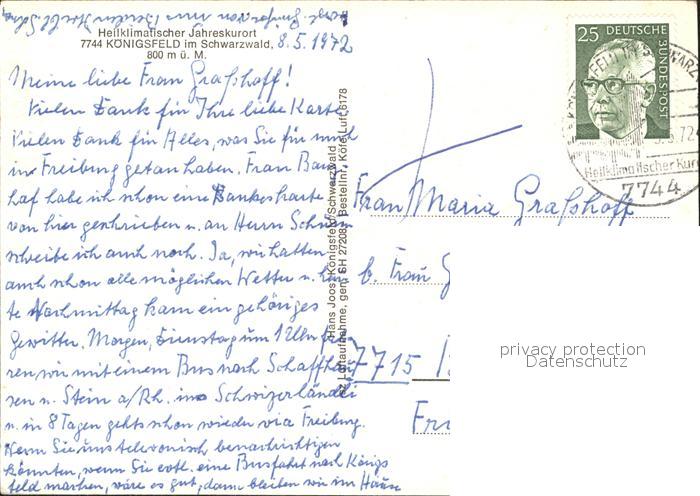 Heilklimatischer Jahreskurort
7744 KÖNIGSFELD im Schwarzwald, 8.5.1972
800 m ü. M.
Meine liebe Frau Graßhoff!
Vielen Dank für Ihre liebe Karte
Vielen Dank für Alles, was Sie für mich
in Freiburg getan haben. Frau Bau
haf habe ich schon eine Dankeskarte
von hier geschrieben u. an Herrn
schreibe ich auch noch. Ja, wir hatten
auch schon alle möglichen Wetter u. heu
te Nachmittag kam ein gehöriges
Gewitter. Morgen, Dienstag um 1 Uhr fah
ren wir mit einem Bus nach Schaffhau
sen u. Stein a/Rh. ins Schweizerländli
u. in 8 Tagen gehts schon wieder via Freiburg.
Wenn Sie uns telefonisch benachrichtigen
könnten, wenn Sie evtl. eine Busfahrt nach Königs
feld machen, wäre es gut, dann bleiben wir im Hause
Hans Joos, Königsfeld/Schwarzwald
Luftaufnahme, gen. SH 27208, Bestellnr. Köfe Luft 6178
25 DEUTSCHE BUNDESPOST
Heilklimatischer Kur
7744
Frau Maria Graßhoff
b. Frau
7715
privacy protection
Datenschutz